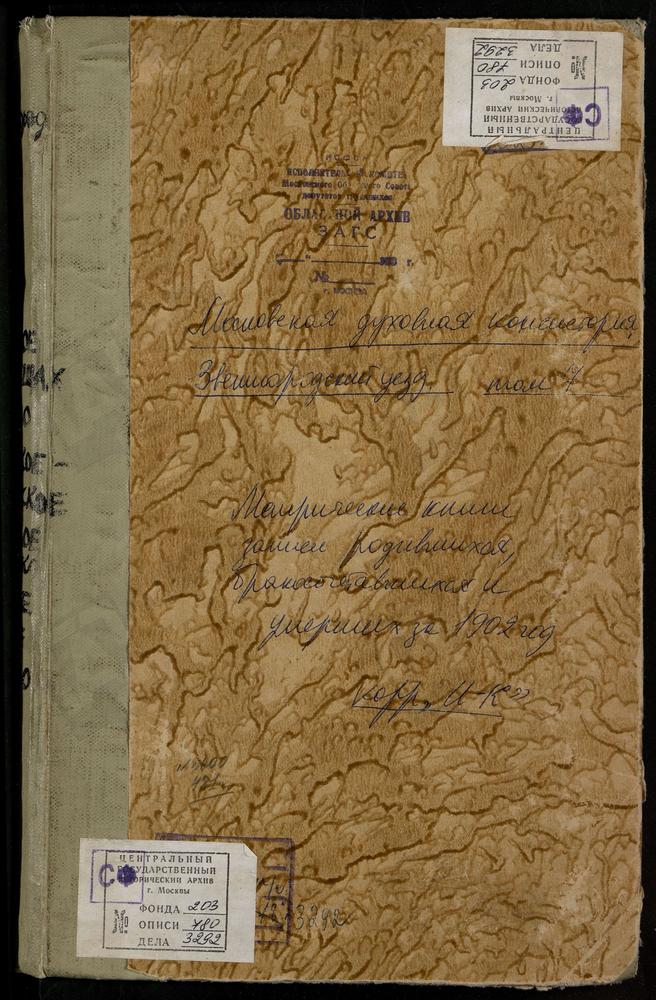 ЦЕНТРАЛЬНЫЙ
ГОСУДАРСТВЕННЫЙ
ИСТОРИЧЕСКИЙ АРХИВ
г. Москвы
СФ
ФОНДА 203
№
ОПИСИ 780
ДЕЛА 3292
РСФСР
ИСПОЛНИТЕЛЬНЫЙ КОМИТЕТ
Московского Областного Совета
депутатов трудящихся
ОБЛАСТНОЙ АРХИВ
ЗАГС
г.
№
г. МОСКВА
Московская духовная консистория
Звенигородский уезд том 7
Метрические книги
записи родившихся,
бракосочетавшихся и
умерших за 1902 год
корр. "И-К"
ЦЕНТРАЛЬНЫЙ
ГОСУДАРСТВЕННЫЙ
ИСТОРИЧЕСКИЙ АРХИВ
г. Москвы
СФ
ФОНДА 203
№
ОПИСИ 780
ДЕЛА 3292
3292